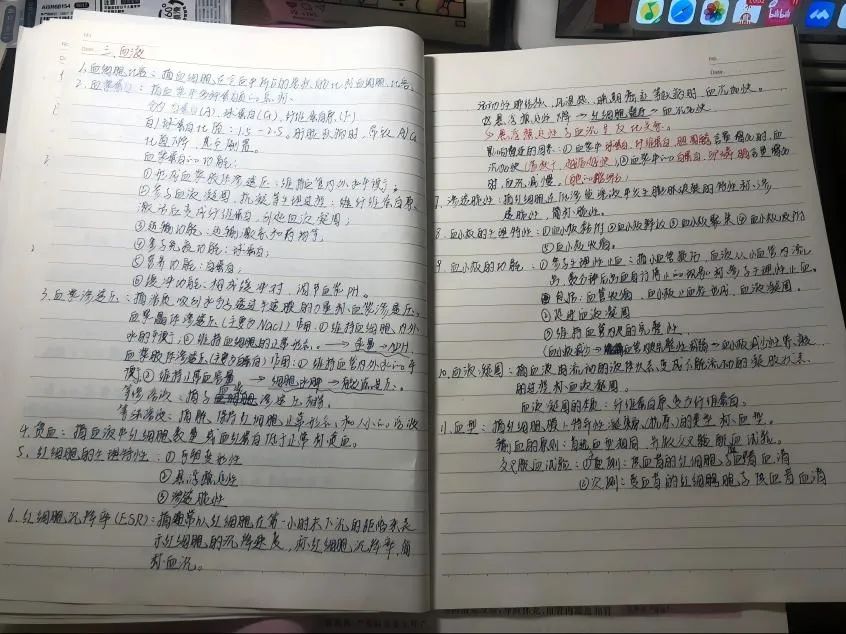 三、血液
1.血细胞比容：指血细胞在全血中所占的容积的比称血细胞比容。
2.血浆蛋白：指血浆中多种蛋白质的总称。
分为白蛋白(A)、球蛋白(G)、纤维蛋白原(F)
白/球蛋白比值：1.5-2.5。肝脏疾病时，导致A/G
比值下降，甚至倒置。
血浆蛋白的功能：
①形成血浆胶体渗透压：维持血管内外水平衡；
②参与血液凝固、抗凝等生理过程：纤维蛋白原
激活后变成纤维蛋白，引起血液凝固；
③运输功能：运输激素和药物等；
④参与免疫功能：球蛋白；
⑤营养功能：白蛋白；
⑥缓冲功能：相成缓冲对，调节血浆pH。
3.血浆渗透压：指溶质吸引水分子透过半透膜的力量称血浆渗透压。
血浆晶体渗透压(主要为NaCl) 作用：①维持血细胞内外
水的平衡；②维持血细胞的正常形态。→ →ADH
血浆胶体渗透压(主要为白蛋白)作用：①维持血管内外水的平
衡；②维持正常血容量 →细胞水肿→
等渗溶液：指与血浆渗透压相等。
等张溶液：指能保持红细胞正常形态和大小的溶液
4.贫血：指血液中红细胞数量或血红蛋白低于正常称贫血。
5.红细胞的生理特性：①可塑变形性
②悬浮稳定性
③渗透脆性
6.红细胞沉降率(ESR)：指通常以红细胞在第一小时末下沉的距离来表
示红细胞的沉降速度，称红细胞沉降率，简
称血沉。
No.
Date
活动性肺结核、风湿热、晚期癌症等疾病时血沉加快。
②悬浮稳定性下降→红细胞叠连→血沉加快
↳悬浮稳定性与血沉呈反比关系。
影响叠连的因素：①血浆中球蛋白、纤维蛋白原、胆固醇含量增加时，血
沉加快 ②血浆中的白蛋白、卵磷脂含量增加
时，血沉减慢。
7.渗透脆性：指红细胞在低渗盐溶液中发生膨胀破裂的特性称渗
透脆性，简称脆性。
8.血小板的生理特性：①血小板黏附②血小板释放③血小板聚集④血小板吸附
⑤血小板收缩。
9.血小板的功能：①参与生理性止血：指小血管损伤，血液从小血管内流
出，数分钟后出血自行停止的现象称为生理性止血。
包括：血管收缩、血小板止血栓形成、血液凝固。
②促进血液凝固
③维持血管内皮的完整性。
(血小板减少→血管内皮完整性减弱→血小板减少性紫癜
10.血液凝固：指血液由流动的液体状态变成不能流动的凝胶状态
的过程称血液凝固。
血液凝固的本质：纤维蛋白原变为纤维蛋白。
11.血型：指红细胞膜上特异性凝集原(抗原)的类型称血型。
输血的原则：首选血型相同，并做交叉配血试验。
交叉配血试验：①主侧：供血者的红细胞与受血者血清
②次侧：受血者的红细胞与供血者血清